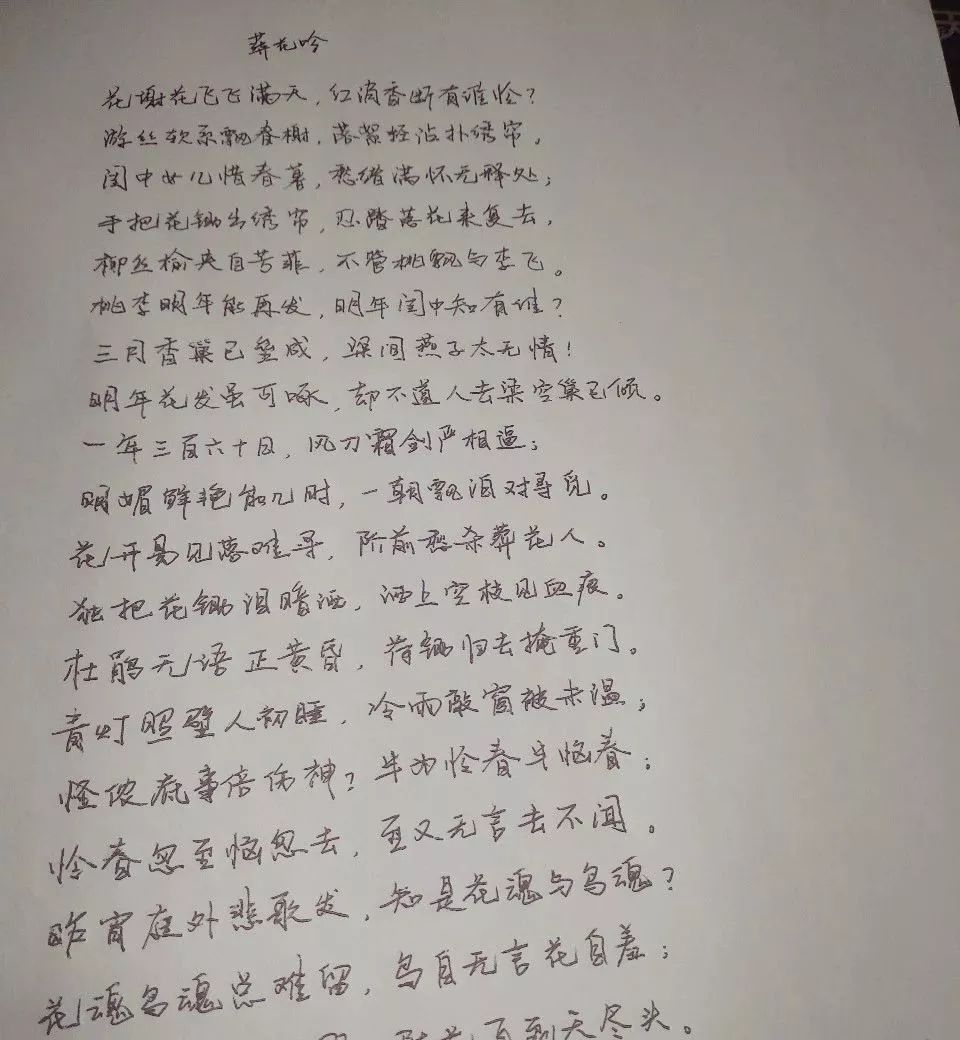 葬花吟
花谢花飞飞满天，红消香断有谁怜？
游丝软系飘春榭，落絮轻沾扑绣帘，
闺中女儿惜春暮，愁绪满怀无释处；
手把花锄出绣帘，忍踏落花来复去，
柳丝榆荚自芳菲，不管桃飘与李飞。
桃李明年能再发，明年闺中知有谁？
三月香巢已垒成，梁间燕子太无情！
明年花发虽可啄，却不道人去梁空巢已倾。
一年三百六十日，风刀霜剑严相逼；
明媚鲜艳能几时，一朝飘泊难寻觅。
花开易见落难寻，阶前愁杀葬花人。
独把花锄泪暗洒，洒上空枝见血痕。
杜鹃无语正黄昏，荷锄归去掩重门。
青灯照壁人初睡，冷雨敲窗被未温；
怪侬底事倍伤神？半为怜春半恼春；
怜春忽至恼忽去，至又无言去不闻。
昨宵庭外悲歌发，知是花魂与鸟魂？
花魂鸟魂总难留，鸟自无言花自羞；
花飞到天尽头。